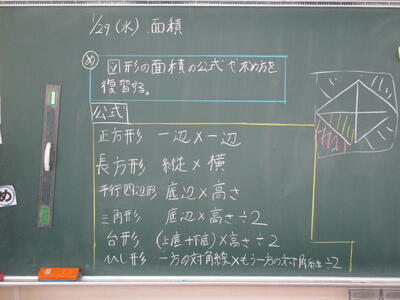 1/29(水) 面積
め
図形の面積の公式や求め方を
復習する。
公式
正方形 一辺×一辺
長方形 縦×横
平行四辺形 底辺×高さ
三角形 底辺×高さ÷2
台形 (上底+下底)×高さ÷2
ひし形 一方の対角線×もう一方の対角線÷2
め